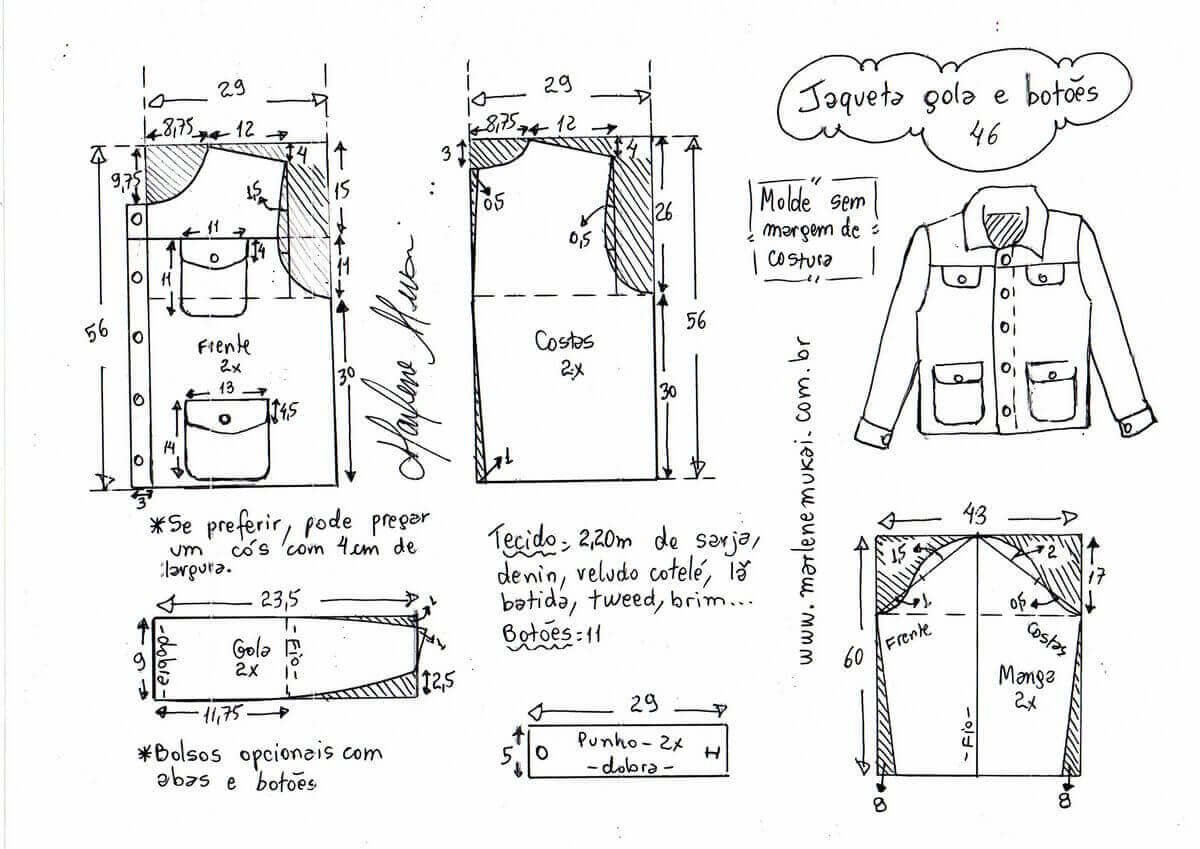 Jaqueta gola e botões
46
Molde sem
margem de
costura
www.marlenemukai.com.br
Marlene Mukai
29
8,75
12
4
9,75
1,5
15
11
4
11
11
56
Frente
2x
30
13
4,5
14
3
29
8,75
12
3
4
0,5
26
0,5
56
Costas
2x
30
1
*Se preferir, pode pregar
um cós com 4cm de
largura.
23,5
1
9
-dobra-
Gola
2x
-Fio-
1
2,5
11,75
*Bolsos opcionais com
abas e botões
Tecido= 2,20m de sarja,
denin, veludo cotelé, lã
batida, tweed, brim...
Botões=11
29
5
Punho-2x
-dobra-
43
1,5
2
17
1
0,5
Frente
Costas
60
Manga
2x
-Fio-
8
8